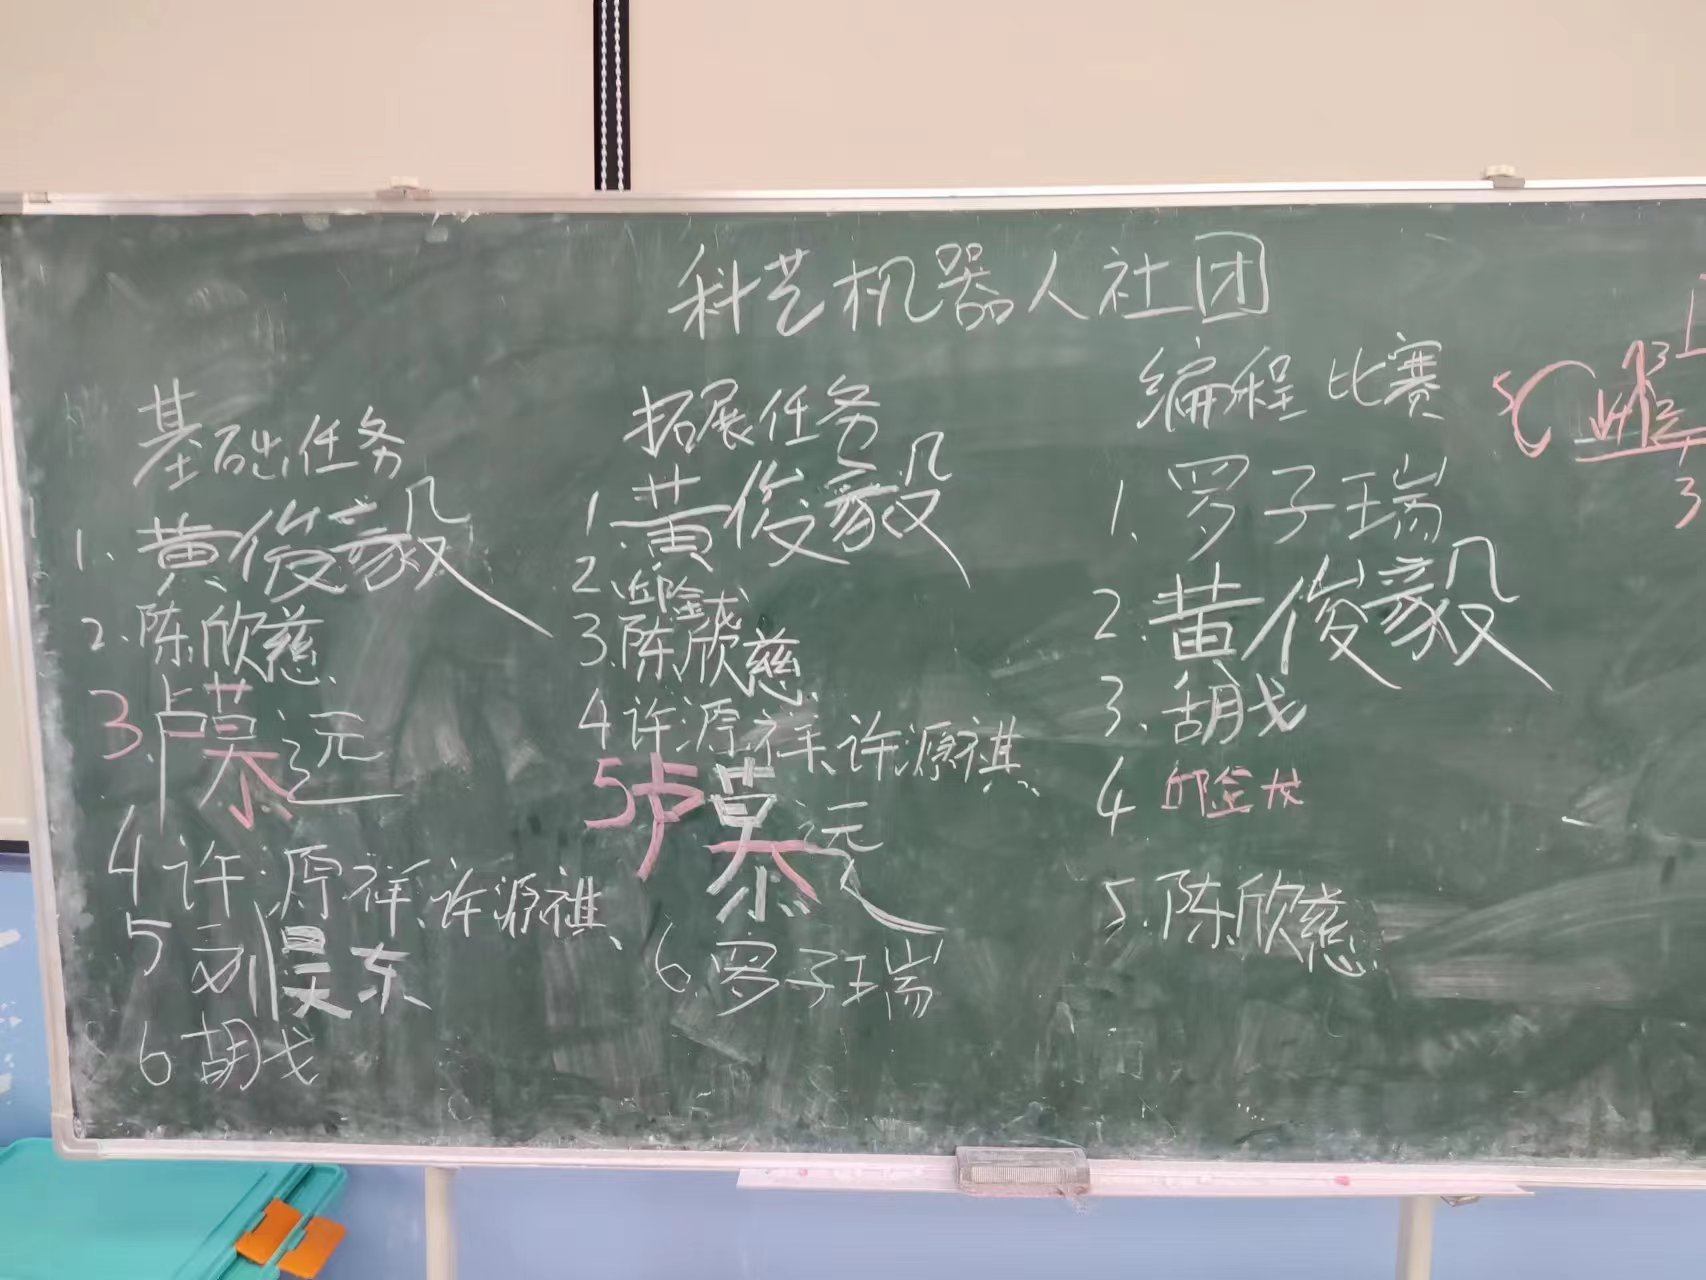 科艺机器人社团
基础任务
1.黄俊毅
2.陈欣慈
3.卢慕远
4许源祥、许源祺
5刘昊东
6胡戈
拓展任务
1.黄俊毅
2.邱金戈
3.陈欣慈
4许源祥、许源祺
5卢慕远
6.罗子瑞
编程比赛
1.罗子瑞
2.黄俊毅
3.胡戈
4邱金戈
5.陈欣慈
5
3
3